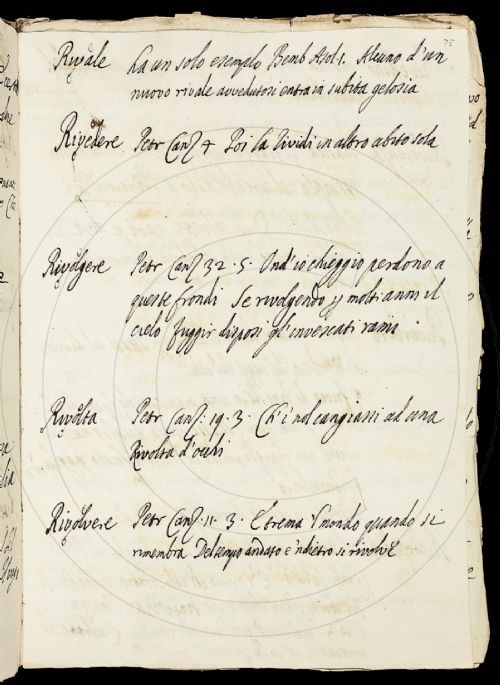 Rivale Ha un solo esempio Bemb Asol. 1. Alcuno d'un
nuovo rivale avvedutosi entra in subita gelosia
Rivedere Petr Canz 4 Poi la rividi in altro abito sola
Rivolgere Petr Canz. 32. 5. Ond'io chieggio perdono a
queste frondi Se rivolgendo poi molt'anni il
cielo fuggir disposi gl'invescati rami
Rivolta Petr Canz. 19. 3. Ch'i nol cangiassi ad una
Rivolta d'occhi
Rivolvere Petr Canz. 11. 3. E trema 'l mondo quando si
rimembra Del tempo andato e 'ndietro si rivolve